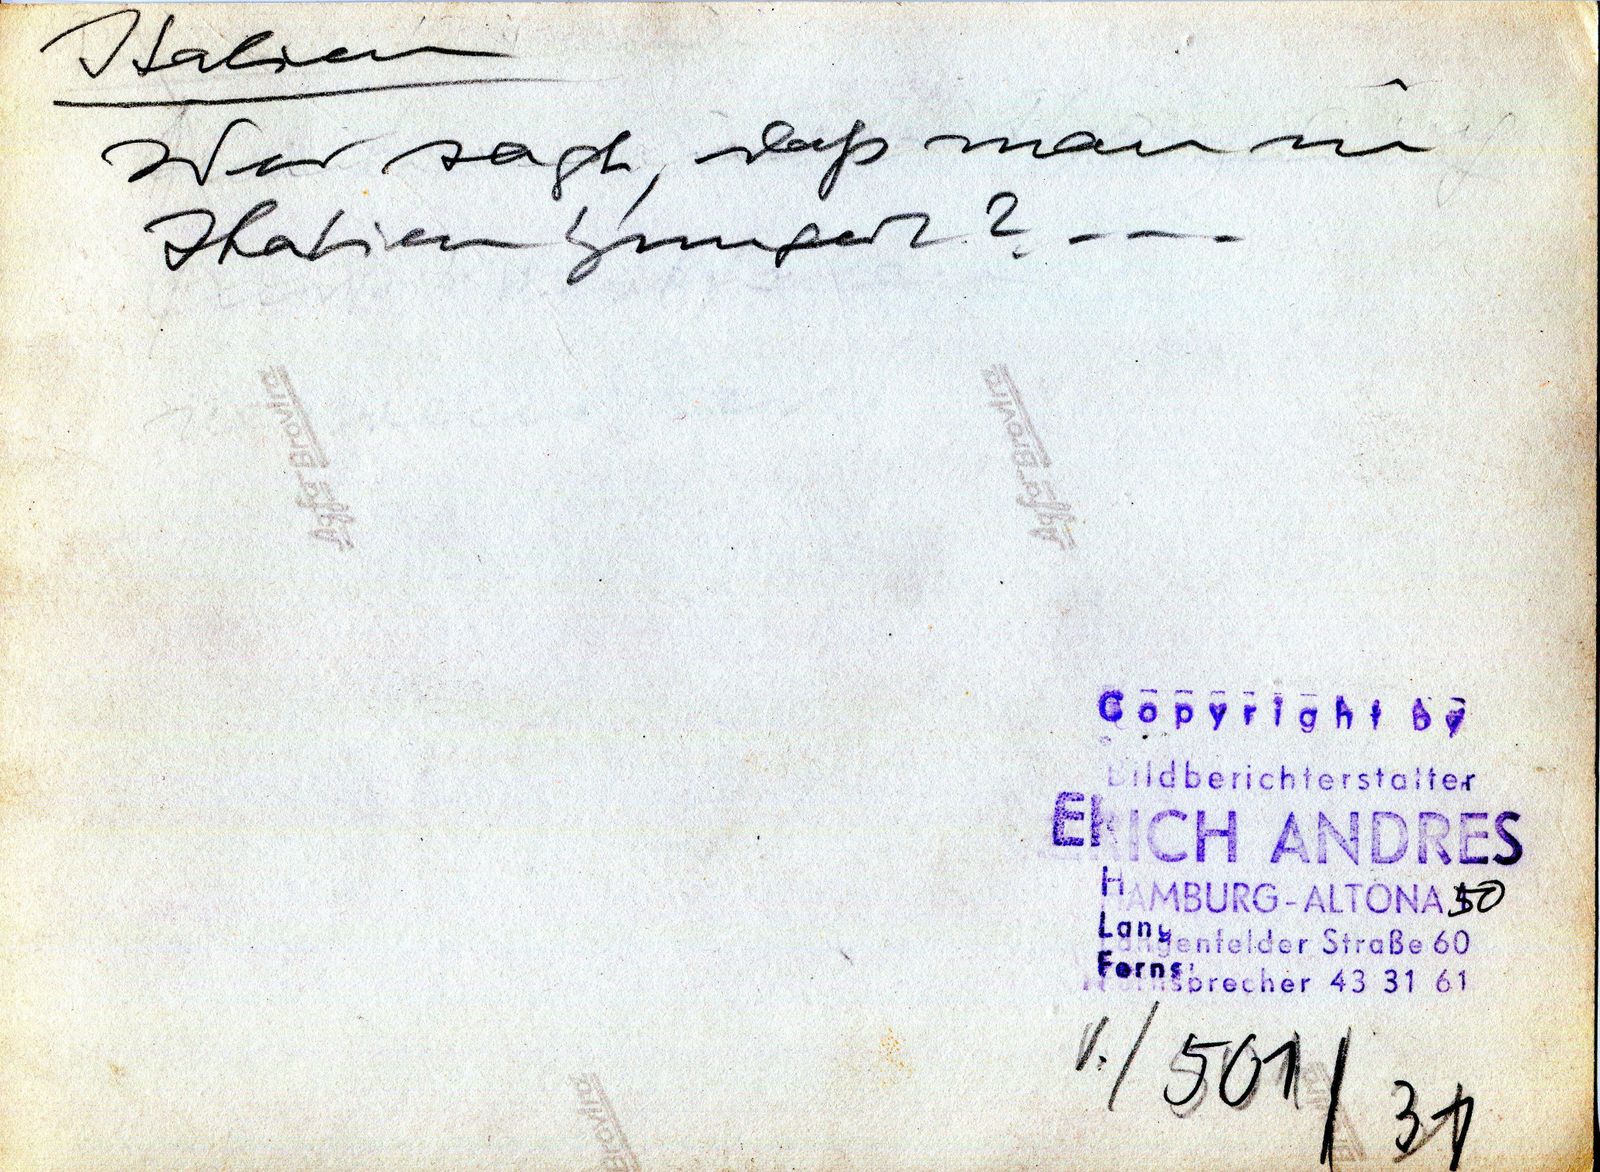 Italien
Wer sagt, daß man in
Italien hungert? ---
Agfa Brovira
Agfa Brovira
Copyright by
Bildberichterstatter
ERICH ANDRES
HAMBURG-ALTONA 50
Langenfelder Straße 60
Fernsprecher 43 31 61
1./501/31
Brovira